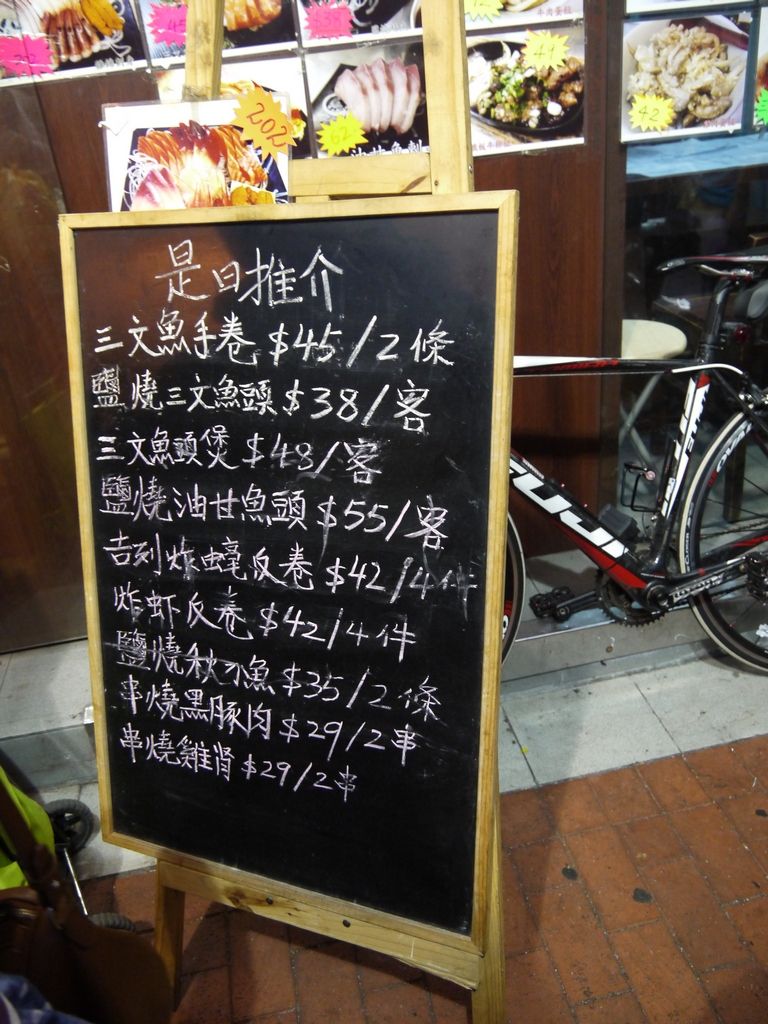 202
42
是日推介
三文魚手卷 $45/2條
鹽燒三文魚頭 $38/客
三文魚頭煲 $48/客
鹽燒油甘魚頭 $55/客
吉列炸蠔反卷 $42/4件
炸虾反卷 $42/4件
鹽燒秋刀魚 $35/2條
串燒黑豚肉 $29/2串
串燒雞腎 $29/2串
FUJI